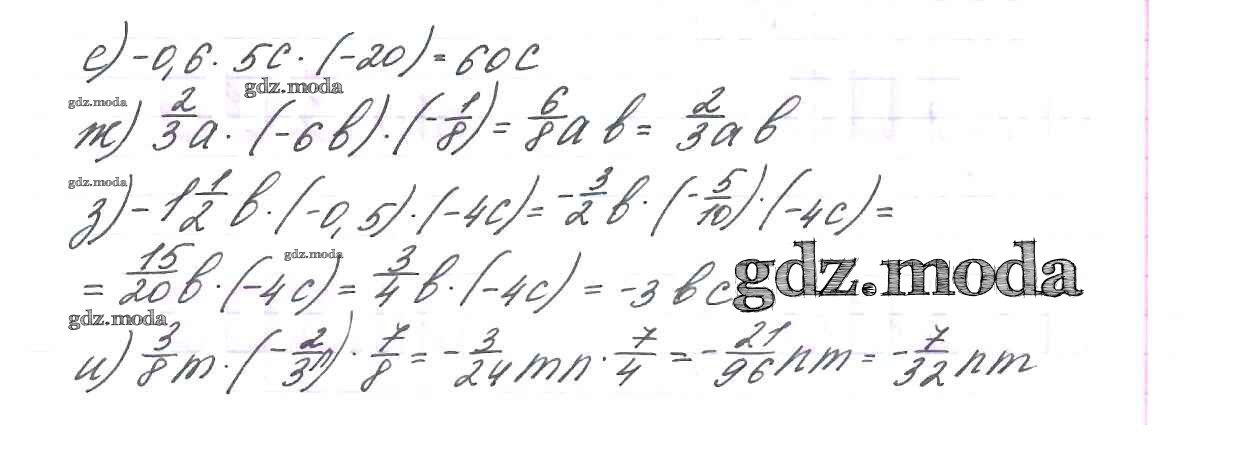 е) -0,6 · 5c · (-20) = 60c
gdz.moda
gdz.moda
ж) 2/3 a · (-6b) · (-1/8) = 6/8 a b = 2/3 a b
gdz.moda
з) -1 1/2 b · (-0,5) · (-4c) = -3/2 b · (-5/10) · (-4c) =
gdz.moda
= 15/20 b · (-4c) = 3/4 b · (-4c) = -3bc
gdz.moda
gdz.moda
и) 3/8 m · (-2/3 n) · 7/8 = -3/24 mn · 7/4 = -21/96 nm = -7/32 nm